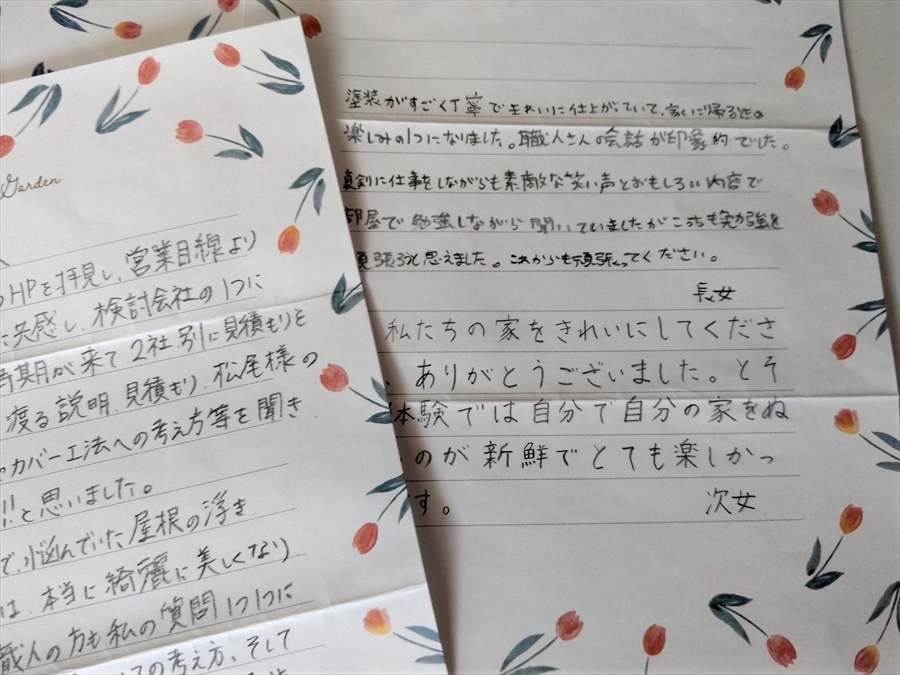 Garden
HPを拝見し、営業目線より
に共感し、検討会社の1つに
時期が来て2社別に見積もりを
渡る説明、見積もり、松尾様の
カバー工法への考え方等を聞き
!!と思いました。
で、悩んでいた屋根の浮き
は、本当に綺麗に美しくなり
職人の方も私の質問1つ1つに
の考え方、そして
塗装がすごく丁寧できれいに仕上がていて、家に帰るの
楽しみの1つになりました。職人さんの会話が印象的でした。
真剣に仕事をしながらも素敵な笑い声とおもしろい内容で
部屋で勉強しながら聞いていましたがこっちも勉強を
頑張ろうと思えました。これからも頑張ってください。
長女
私たちの家をきれいにしてくださ
、ありがとうございました。とそ
体験では自分で自分の家をぬ
のが新鮮でとても楽しかっ
す。 次女